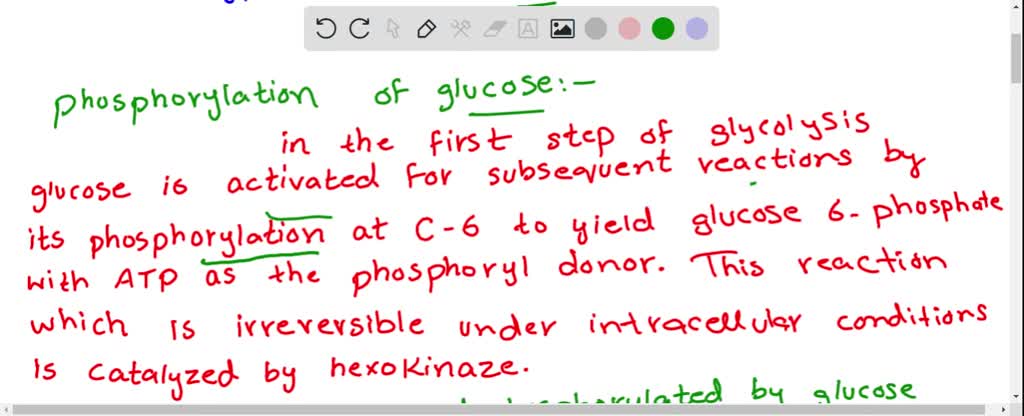 phosphorylation of glucose:-
in the first step of glycolysis
glucose is activated for subsequent reactions by
its phosphorylation at C-6 to yield glucose 6-phosphate
with ATP as the phosphoryl donor. This reaction
which is irreversible under intracellular conditions
is catalyzed by hexokinaze.
by glucose